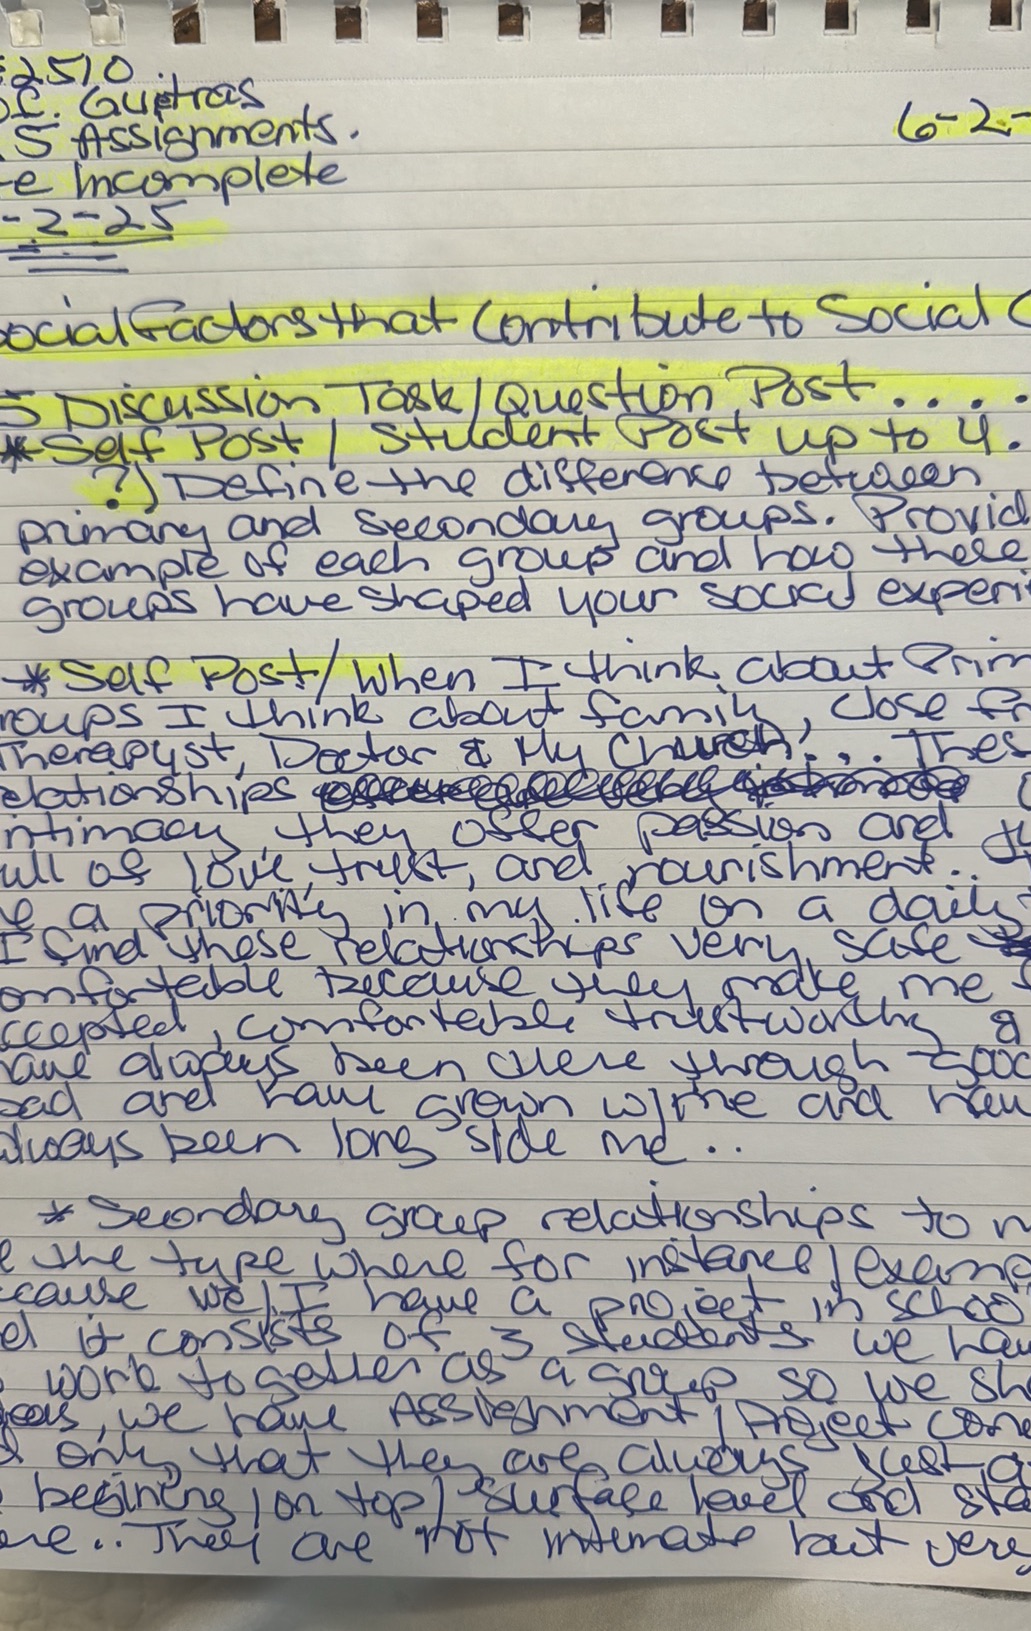 2510
Guptras
5 Assignments.
6-2-
e Incomplete
-2-25
ocial Factors that Contribute to Social C
5 Discussion Task/Question Post.....
*Self Post / Student Post up to 4.
?) Define the difference between
primary and secondary groups. Provid
example of each group and how these
groups have shaped your social experi
*Self Post/When I think about Prim
roups I think about family, close fr
Therapyst, Doctor & My Church... Thes
elationships
intimacy, they offer passion and th
ull of love, trust, and nourishment..
e a priority in my life on a daily
I find these relationships very safe
omfortable because they make me
ccepted, comfortable trustworthy &
have always been there through good
bad and have grown w/me and hav
always been long side me..
* Secondary group relationships to m
e the type where for instance/examp
cause we/I have a project in schoo
d it consists of 3 students we hav
work together as a group so we sh
deas, we have Assignment/Project conc
d only that they are always just a
begining/on top/surface level and sta
ere.. They are not intimate but very